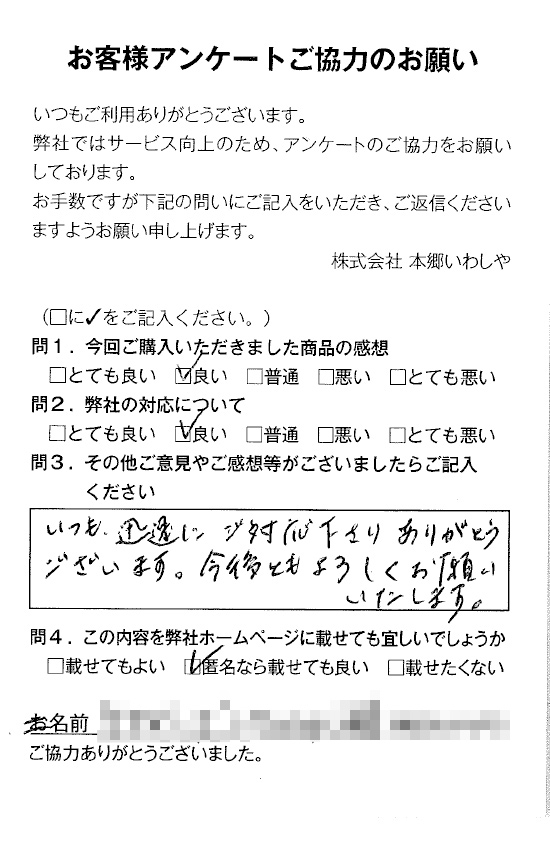 お客様アンケートご協力のお願い
いつもご利用ありがとうございます。
弊社ではサービス向上のため、アンケートのご協力をお願い
しております。
お手数ですが下記の問いにご記入をいただき、ご返信ください
ますようお願い申し上げます。
株式会社 本郷いわしや
（□に✓をご記入ください。）
問1．今回ご購入いただきました商品の感想
□とても良い ☑良い □普通 □悪い □とても悪い
問2．弊社の対応について
□とても良い ☑良い □普通 □悪い □とても悪い
問3．その他ご意見やご感想等がございましたらご記入
ください
いつも、迅速に ご対応下さり ありがとう
ございます。今後ともよろしくお願い
いたします。
問4．この内容を弊社ホームページに載せても宜しいでしょうか
□載せてもよい ☑匿名なら載せても良い □載せたくない
お名前
ご協力ありがとうございました。